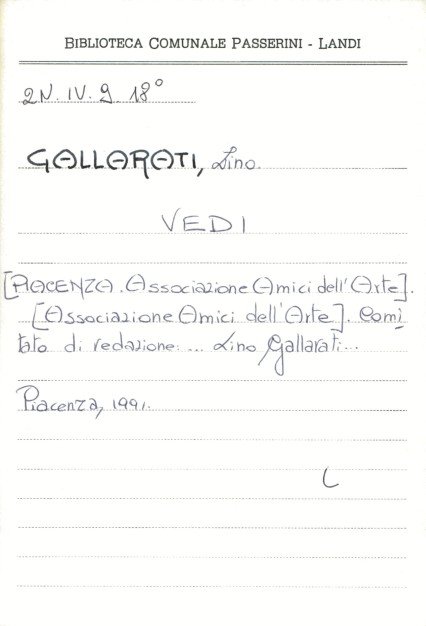 BIBLIOTECA COMUNALE PASSERINI - LANDI
2N. IV. 9. 18°
GALLARATI, Lino.
VEDI
[PIACENZA. Associazione Amici dell'Arte].
[Associazione Amici dell'Arte]. Comi
tato di redazione: ... Lino Gallarati...
Piacenza, 1991.
L